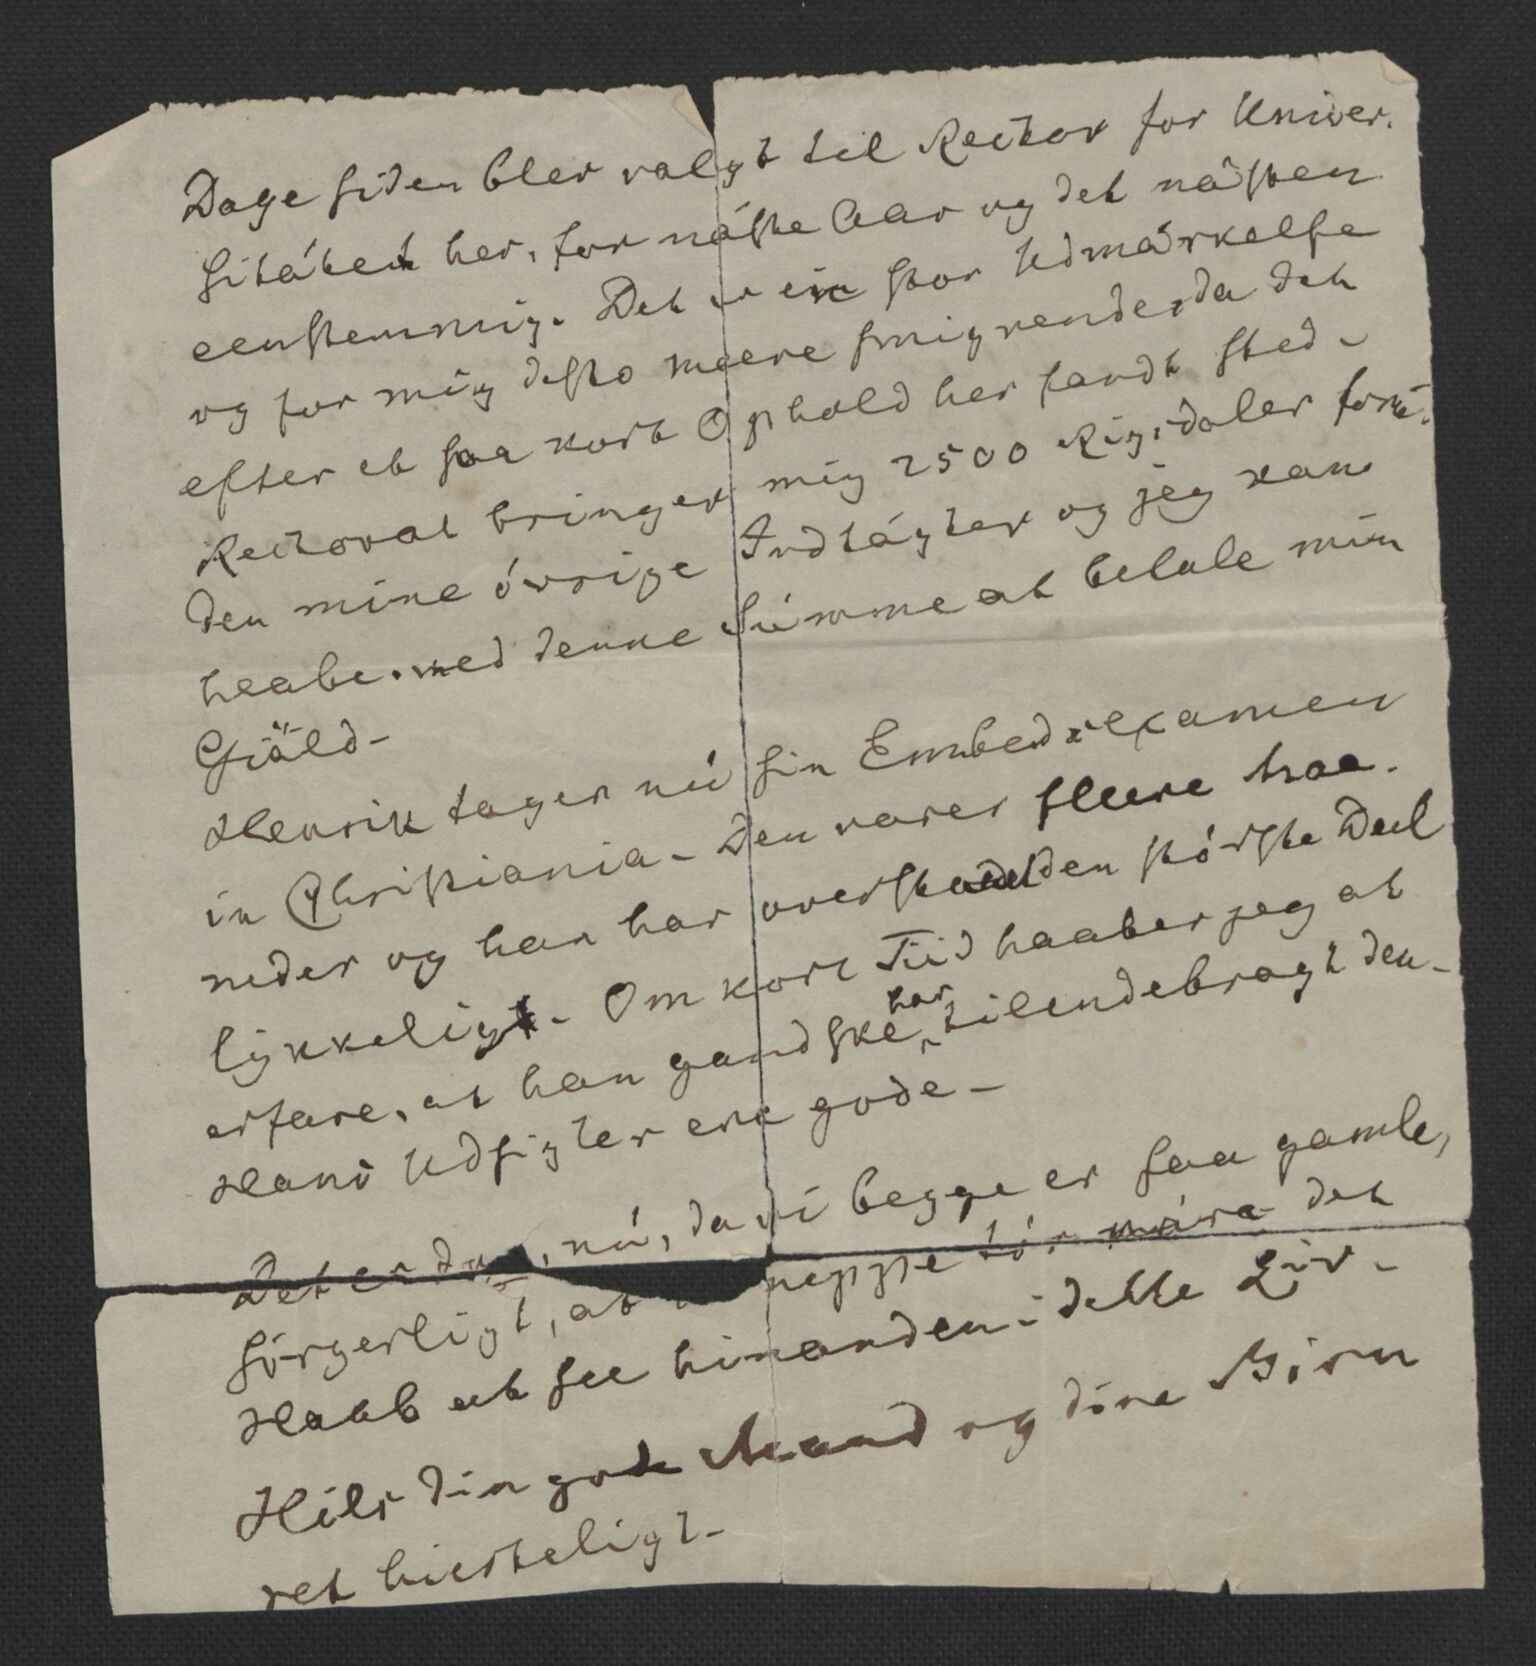 Dage siden blev valgt til Rector for Univer-
sitätet her, for näste Aar og det nästen
eenstemmig. Det er ein stor Udmärkelse
og for mig desto meere smigrende, da det
efter et saa kort Ophold her fandt sted -
Rectorat bringer mig 2500 Rigsdaler foru-
den mine övrige Indtägter og jeg kan
haabe med denne Summe at betale min
Gjäld -
Henrik tager nu sin Embedsexamen
in Christiania - Den varer fleere Maa-
neder og han har overstaaet den störste Deel
lykkeligt - Om kort Tiid haaber jeg at
erfare, at han gandske har tilendebragt den -
Hans Udsigter ere gode -
Det er dog, nu, da vi begge er saa gamle,
sörgerligt, at neppe tör det
Haab at see hinanden i dette Liv -
Hils din gode Mand og dine Börn
ret hierteligt -